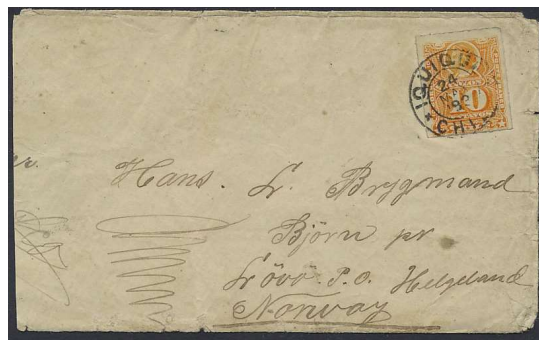 IQUIQUE
24
CHILE
10
Hans. L. Brygmand
Björn pr
Lövö P.O. Helgeland
Norway